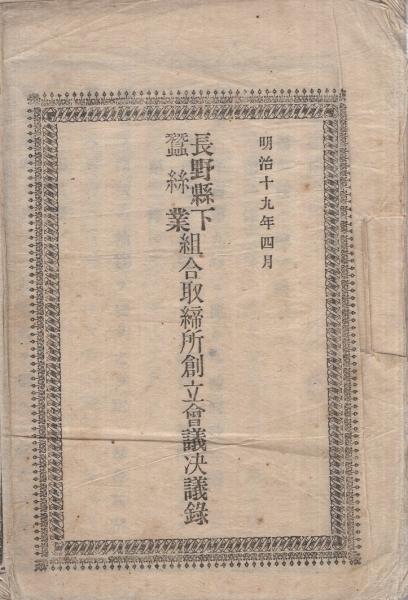 明治十九年四月
長野縣下
蠶絲業
組合取締所創立會議決議錄